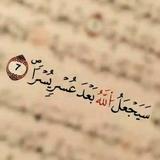 سَيَجْعَلُ اللَّهُ بَعْدَ عُسْرٍ يُسْرًا ٧